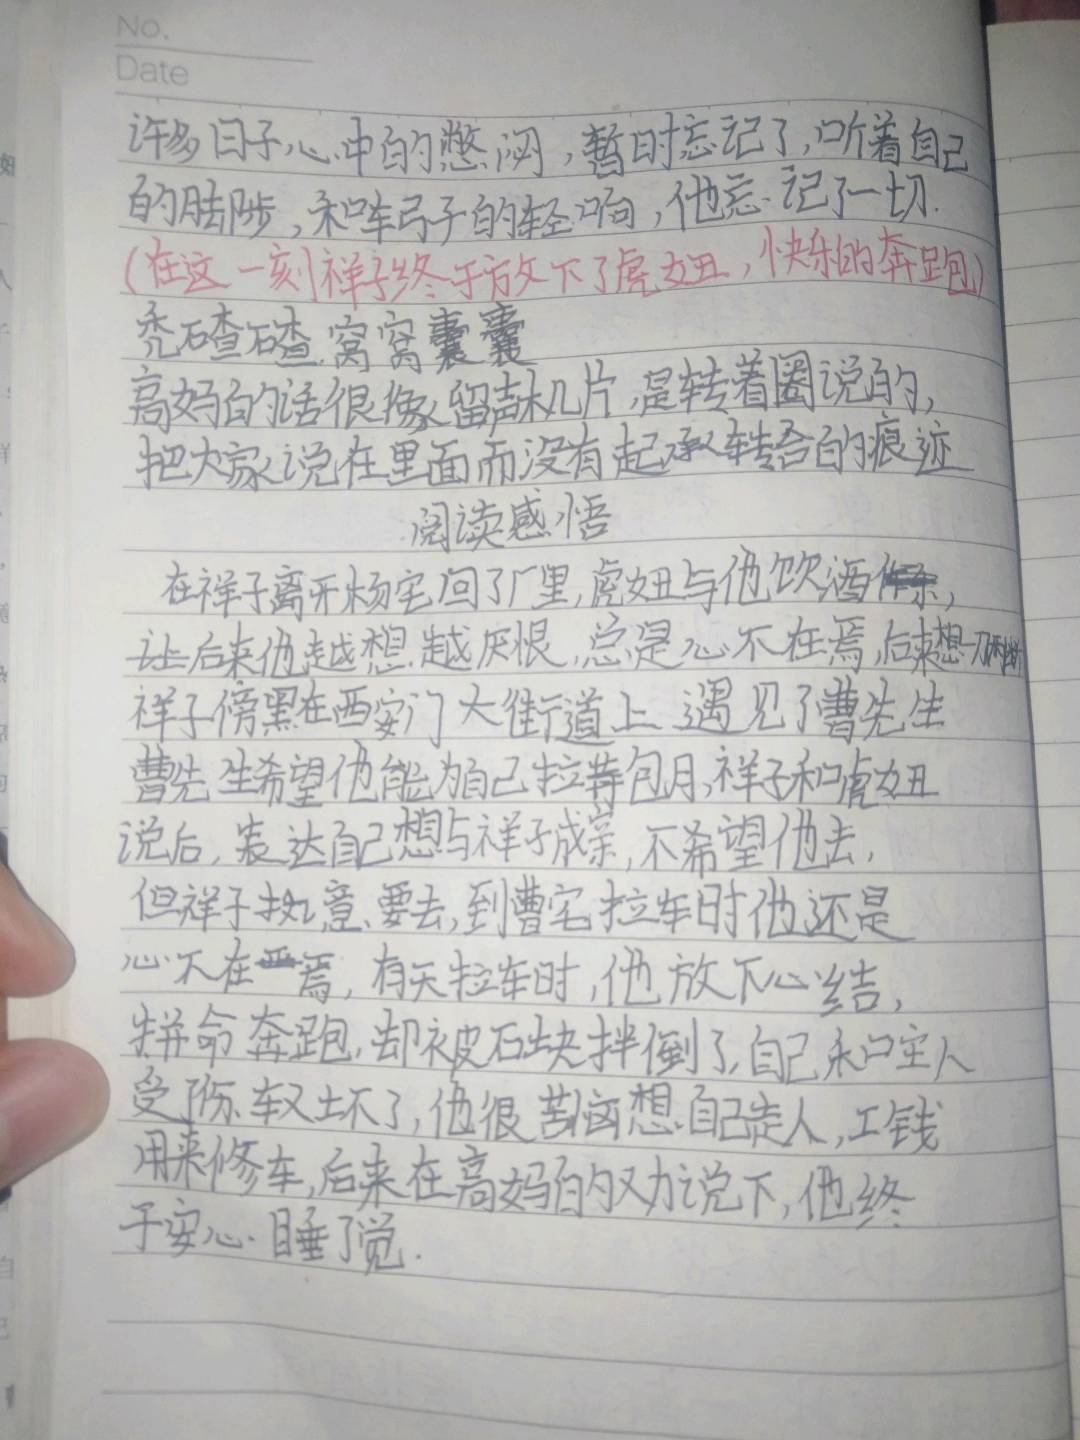 No.
Date
许多日子心中的憋闷，暂时忘记了，听着自己
的脚步，和车弓子的轻响，他忘记了一切.
(在这一刻祥子终于放下了虎妞，快乐的奔跑)
秃碴碴 窝窝囊囊
高妈的话很像留声机片，是转着圈说的，
把大家说在里面而没有起承转合的痕迹
阅读感悟
在祥子离开杨宅回了厂里，虎妞与他饮酒，
让后来他越想越厌恨，总是心不在焉，后来想一刀两断
祥子傍黑在西安门大街道上遇见了曹先生
曹先生希望他能为自己拉包月，祥子和虎妞
说后，表达自己想与祥子成亲，不希望他去，
但祥子执意要去，到曹宅拉车时他还是
心不在焉，有天拉车时，他放下心结，
拼命奔跑，却被石块拌倒了，自己和主人
受了伤，车又坏了，他很苦闷想自己走人，工钱
用来修车，后来在高妈的劝说下，他终
于安心睡了觉.